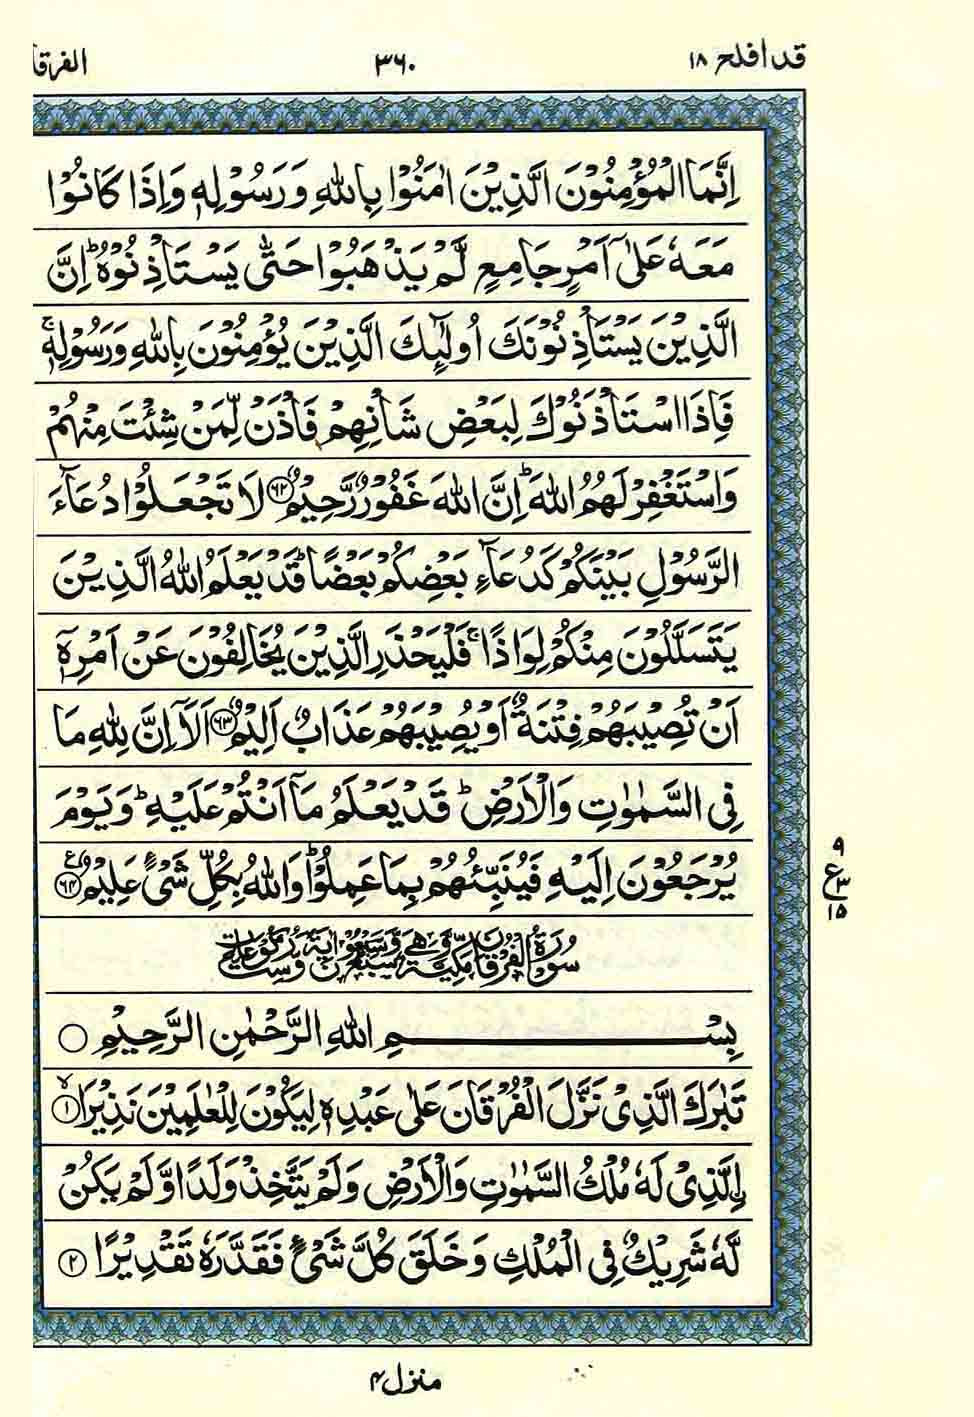 قد افلح ۱۸ ۳۶۰ الفرقا
اِنَّمَا الۡمُؤۡمِنُوۡنَ الَّذِيۡنَ اٰمَنُوۡا بِاللّٰهِ وَرَسُوۡلِهٖ وَاِذَا كَانُوۡا
مَعَهٗ عَلٰٓى اَمۡرٍ جَامِعٍ لَّمۡ يَذۡهَبُوۡا حَتّٰى يَسۡتَاۡذِنُوۡهُ‌ؕ اِنَّ
الَّذِيۡنَ يَسۡتَاۡذِنُوۡنَكَ اُولٰٓٮِٕكَ الَّذِيۡنَ يُؤۡمِنُوۡنَ بِاللّٰهِ وَرَسُوۡلِهٖ‌ۚ
فَاِذَا اسۡتَاۡذَنُوۡكَ لِبَعۡضِ شَاۡنِهِمۡ فَاۡذَنۡ لِّمَنۡ شِئۡتَ مِنۡهُمۡ
وَاسۡتَغۡفِرۡ لَهُمُ اللّٰهَ‌ؕ اِنَّ اللّٰهَ غَفُوۡرٌ رَّحِيۡمٌ ﴿۶۲﴾ لَا تَجۡعَلُوۡا دُعَآءَ
الرَّسُوۡلِ بَيۡنَكُمۡ كَدُعَآءِ بَعۡضِكُمۡ بَعۡضًا‌ؕ قَدۡ يَعۡلَمُ اللّٰهُ الَّذِيۡنَ
يَتَسَلَّلُوۡنَ مِنۡكُمۡ لِوَاذًا‌ۚ فَلۡيَحۡذَرِ الَّذِيۡنَ يُخَالِفُوۡنَ عَنۡ اَمۡرِهٖۤ
اَنۡ تُصِيۡبَهُمۡ فِتۡنَةٌ اَوۡ يُصِيۡبَهُمۡ عَذَابٌ اَلِيۡمٌ ﴿۶۳﴾ اَلَاۤ اِنَّ لِلّٰهِ مَا
فِى السَّمٰوٰتِ وَالۡاَرۡضِ‌ؕ قَدۡ يَعۡلَمُ مَاۤ اَنۡتُمۡ عَلَيۡهِؕ وَيَوۡمَ
يُرۡجَعُوۡنَ اِلَيۡهِ فَيُنَبِّئُهُمۡ بِمَا عَمِلُوۡا‌ؕ وَاللّٰهُ بِكُلِّ شَىۡءٍ عَلِيۡمٌ ﴿۶۴﴾
۹
ع۳
۱۵
سُوۡرَةُ الۡفُرۡقَانِ مَكِّيَّةٌ وَّهِىَ سَبۡعٌ وَّسَبۡعُوۡنَ اٰيَةً
بِسۡمِ اللّٰهِ الرَّحۡمٰنِ الرَّحِيۡمِ
تَبٰرَكَ الَّذِىۡ نَزَّلَ الۡفُرۡقَانَ عَلٰى عَبۡدِهٖ لِيَكُوۡنَ لِلۡعٰلَمِيۡنَ نَذِيۡرَا ۙ‏﴿۱﴾
اۨلَّذِىۡ لَهٗ مُلۡكُ السَّمٰوٰتِ وَالۡاَرۡضِ وَلَمۡ يَتَّخِذۡ وَلَدًا وَّلَمۡ يَكُنۡ
لَّهٗ شَرِيۡكٌ فِى الۡمُلۡكِ وَخَلَقَ كُلَّ شَىۡءٍ فَقَدَّرَهٗ تَقۡدِيۡرًا ﴿۲﴾
منزل ۴